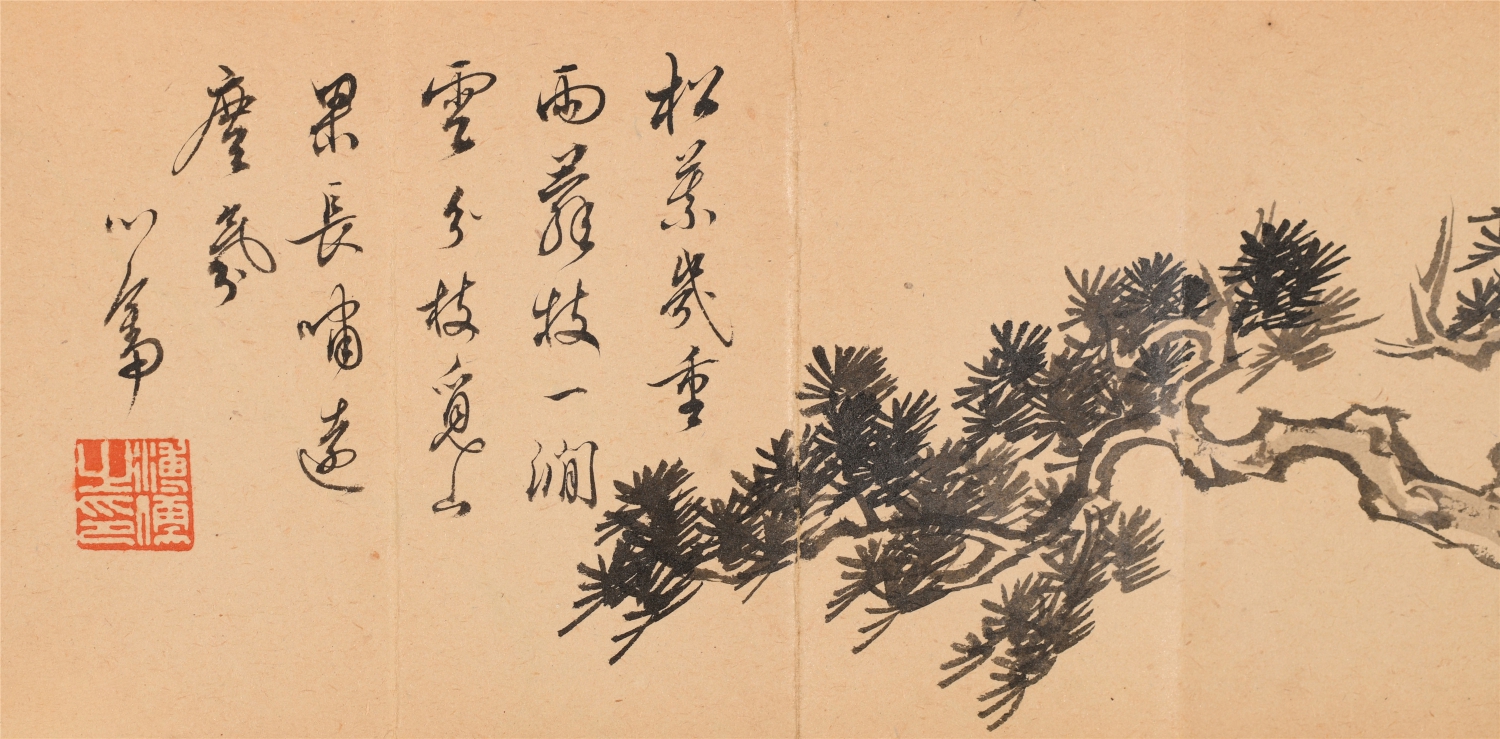 松葉幾重
雨蘚枝一澗
雲分枝覓山
果長嘯遠
塵氛
心畬
溥儒之印